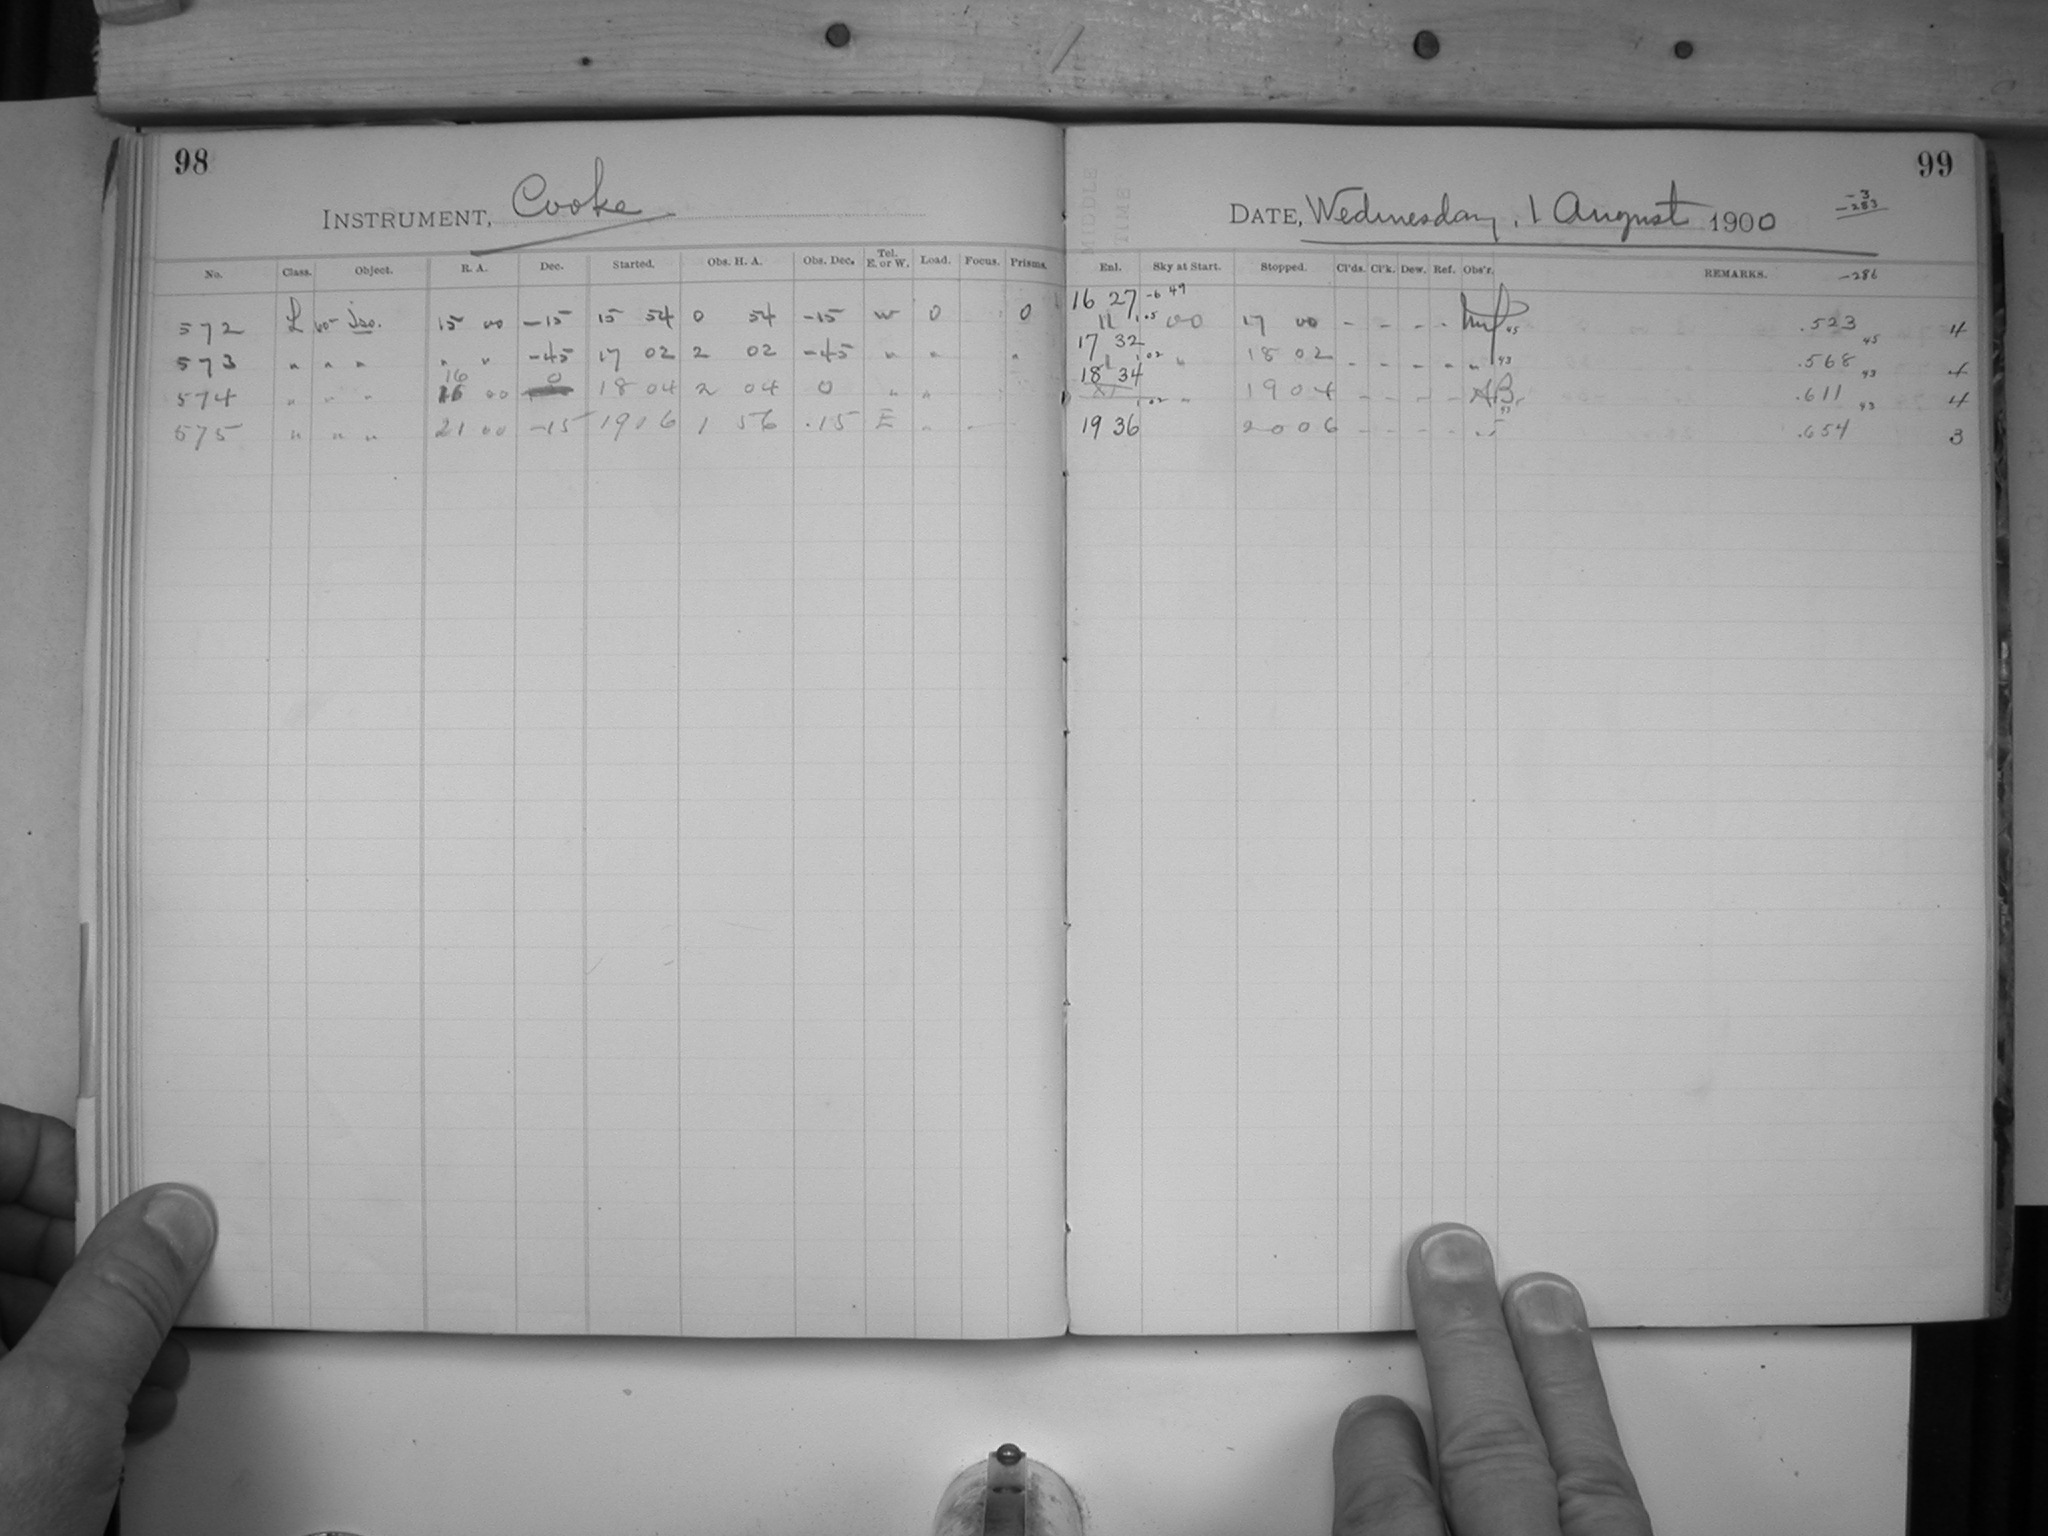 98
INSTRUMENT, Cooke
No. Class. Object. R. A. Dec. Started. Obs. H. A. Obs. Dec. Tel. E. or W. Load. Focus. Prisms.
572 L 60- Iso. 15 00 -15 15 54 0 54 -15 W 0 0
573 " " " " " -45 17 02 2 02 -45 " " "
574 " " " 16 00 0 18 04 2 04 0 " "
575 " " " 21 00 -15 19 16 1 56 -15 E "
99
MIDDLE TIME
DATE, Wednesday, 1 August 1900
-3
-283
-286
Enl. Sky at Start. Stopped. Cl'ds. Cl'k. Dew. Ref. Obs'r. REMARKS.
16 27 -6 49
11 1.05 00 17 00 - - - - 45 .523 4
17 32 45
1.02 " 18 02 - - - - " 43 .568 4
18 34 43
1.02 " 19 04 - - - - AB. 43 .611 4
19 36 43
20 06 - - - - .654 3